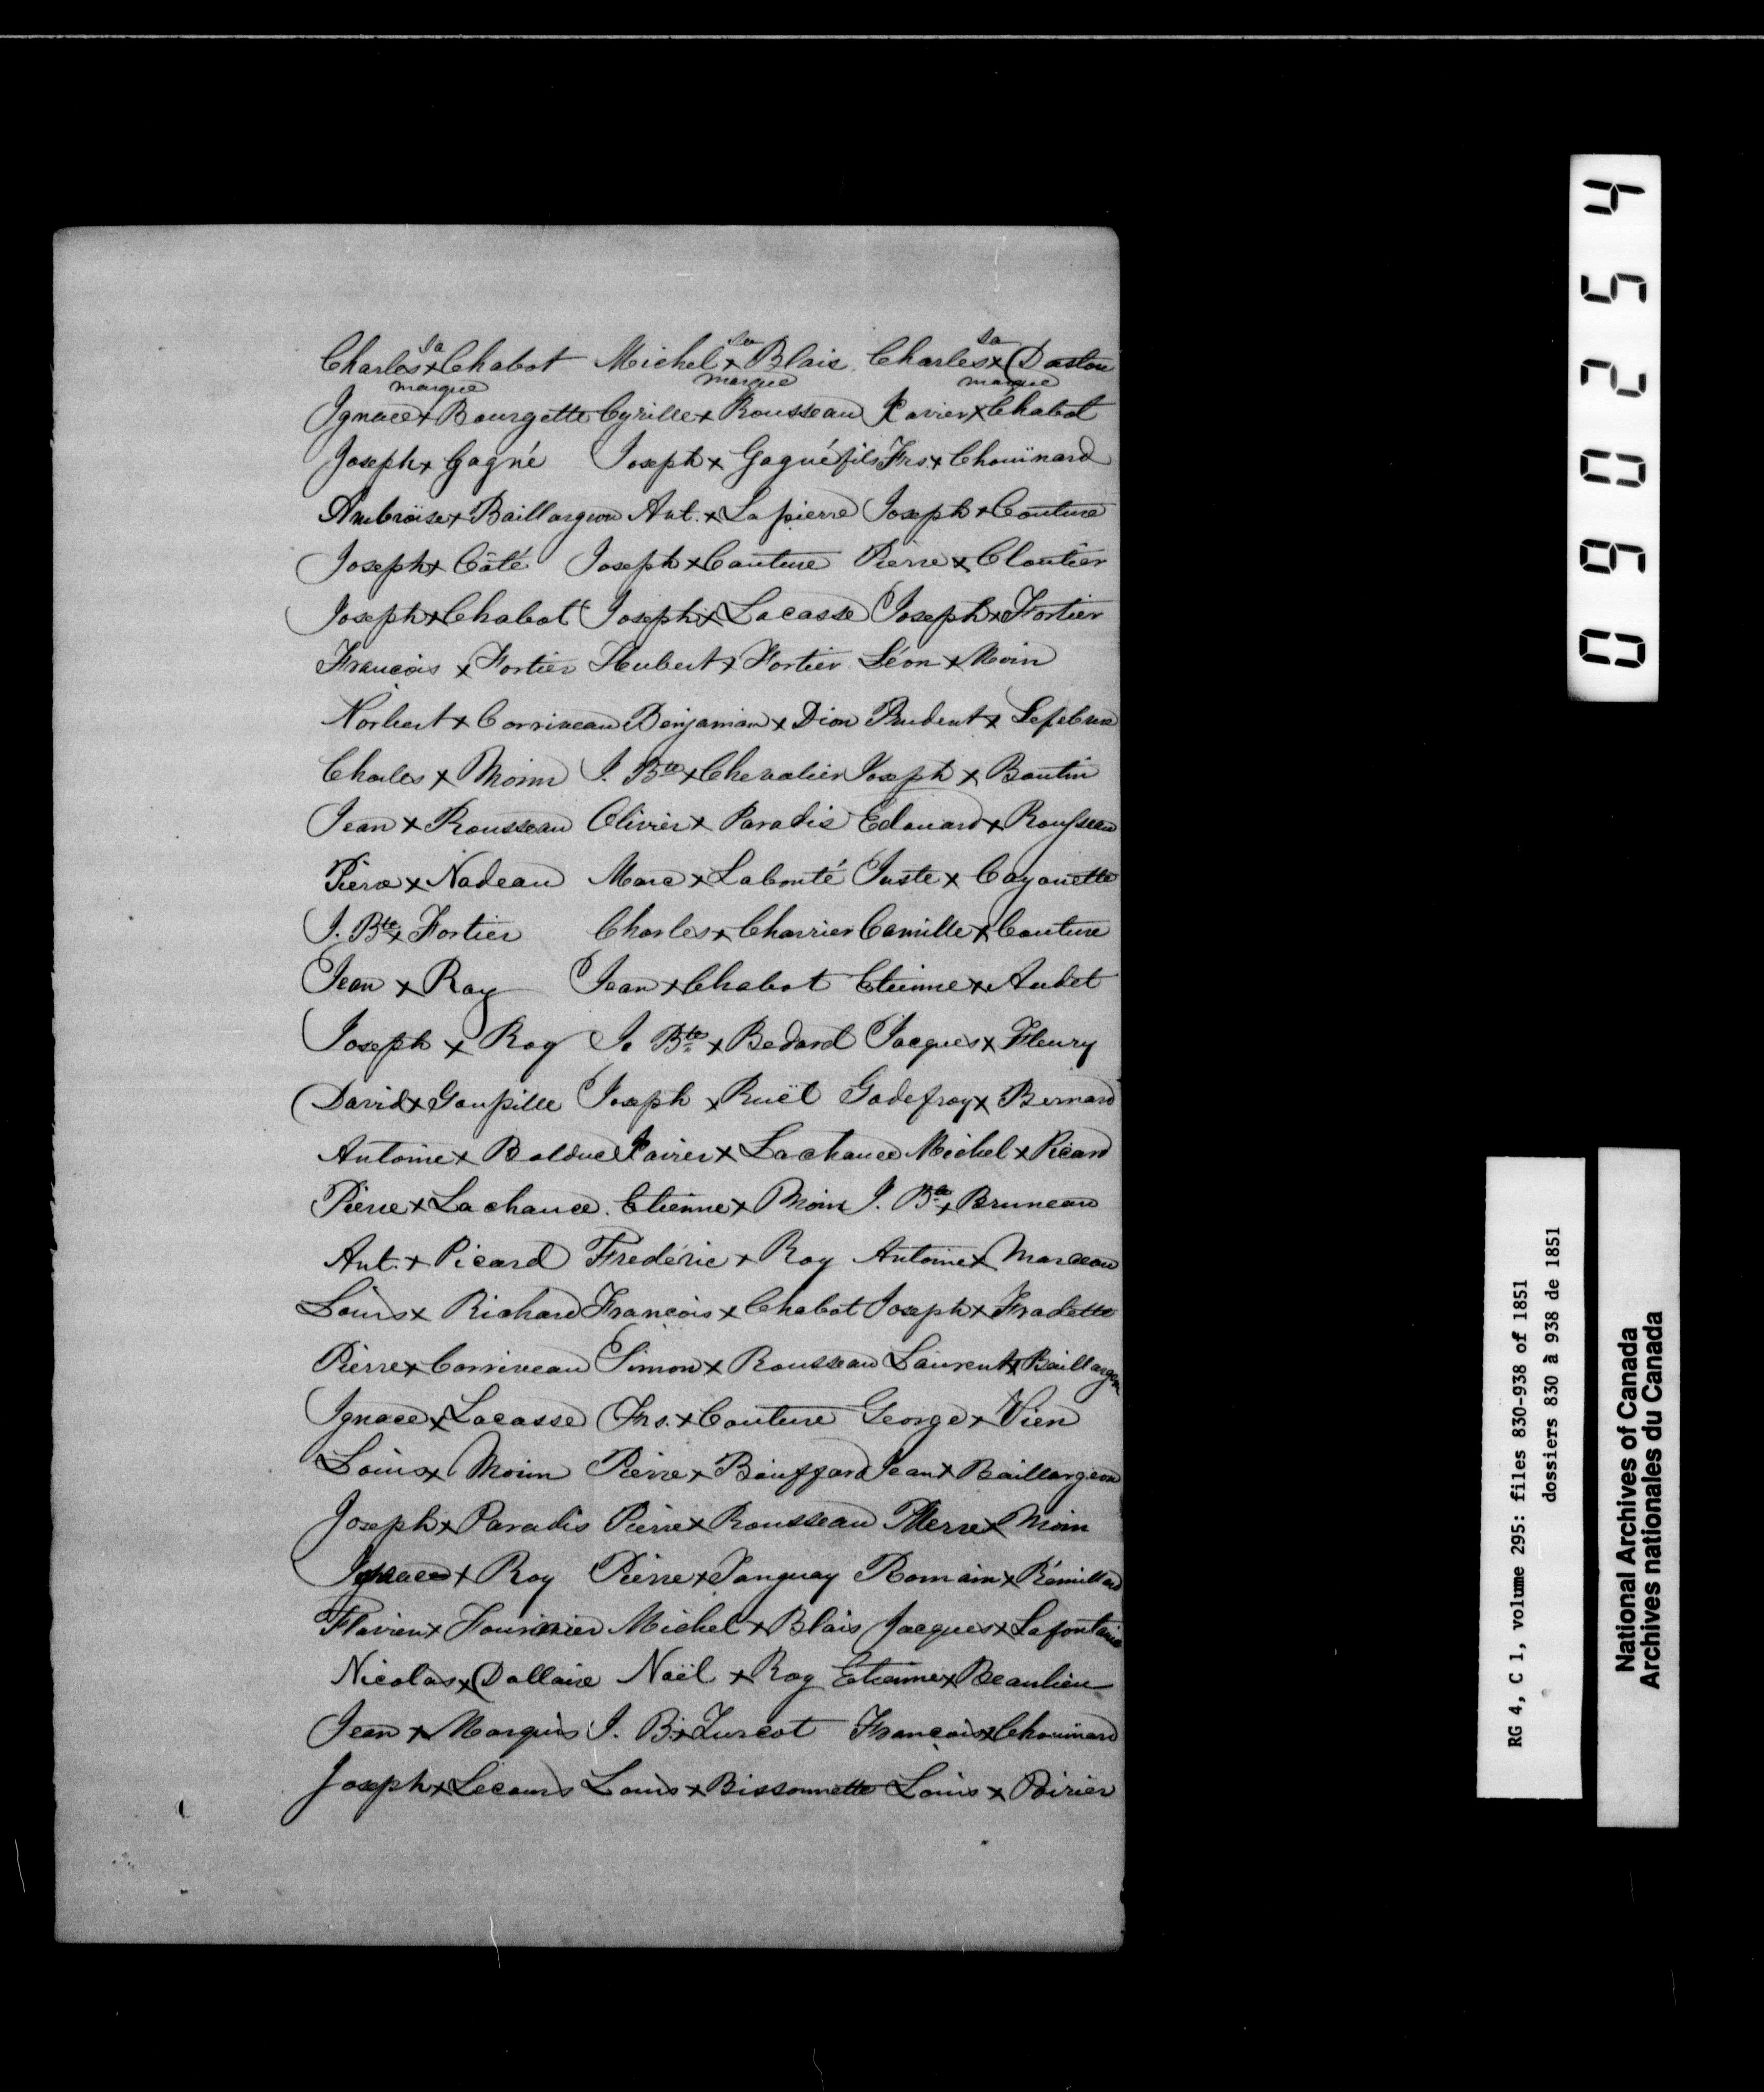 Charles sa x marque Chabot Michel sa x marque Blais Charles sa x marque Daston
Ignace x Bourgette Cyrille x Rousseau Xavier x Chabot
Joseph x Gagné Joseph x Gagné fils Frs. x Chouïnard
Ambroise x Baillargeon Ant. x Lapierre Joseph x Couture
Joseph x Côté Joseph x Couture Pierre x Cloutier
Joseph x Chabot Joseph x Lacasse Joseph x Fortier
François x Fortier Hubert x Fortier Léon x Morin
Norbert x Corriveau Benjamin x Dion Prudent x Lefebvre
Charles x Morin J. Bte x Chevalier Joseph x Boutin
Jean x Rousseau Olivier x Paradis Edouard x Rousseau
Pierre x Nadeau Marc x Labonté Juste x Cayouette
J. Bte x Fortier Charles x Charrier Camille x Couture
Jean x Roy Jean x Chabot Etienne x Audet
Joseph x Roy J. Bte x Bedard Jacques x Fleury
David x Goupille Joseph x Ruël Godefroy x Bernard
Antoine x Bolduc Xavier x Lachance Michel x Picard
Pierre x Lachance. Etienne x Morin J. Bte x Bruneau
Ant. x Picard Fredéric x Roy Antoine x Marceau
Louis x Richard François x Chabot Joseph x Fradette
Pierre x Corriveau Simon x Rousseau Laurent x Baillargeon
Ignace x Lacasse Frs. x Couture George x Vien
Louis x Morin Pierre x Bouffard Jean x Baillargeon
Joseph x Paradis Pierre x Rousseau Pierre x Morin
Ignace x Roy Pierre x Tanguay Romain x Rémillard
Flavien x Fournier Michel x Blais Jacques x Lafontaine
Nicolas x Dallaire Noël x Roy Etienne x Beaulieu
Jean x Marquis J. B. x Turcot François x Chouinard
Joseph x Lecours Louis x Bissonnette Louis x Poirier
090254
RG 4, C 1, volume 295: files 830-938 of 1851
dossiers 830 à 938 de 1851
National Archives of Canada
Archives nationales du Canada